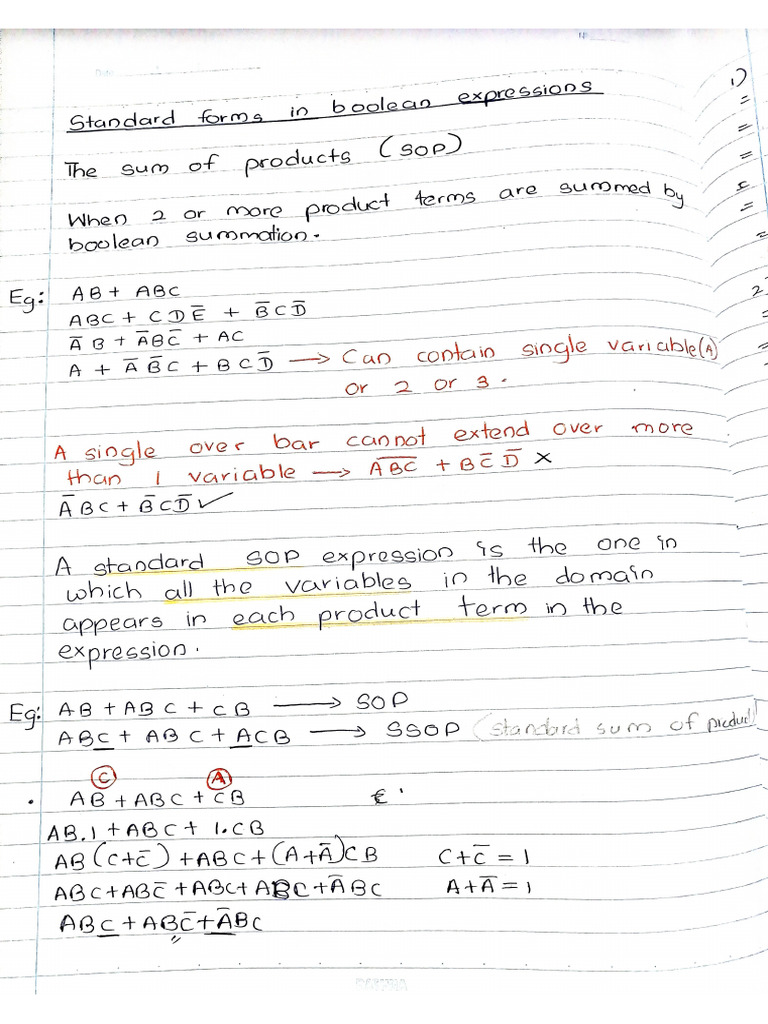 Standard forms in boolean expressions
The sum of products (SOP)
When 2 or more product terms are summed by
boolean summation.
Eg: AB + ABC
ABC + CDE̅ + B̅CD̅
A̅B + A̅BC̅ + AC
A + A̅B̅C + BCD̅ → Can contain single variable(A)
or 2 or 3.
A single over bar cannot extend over more
than 1 variable → A̅B̅C̅ + BC̅D̅ ×
A̅BC + B̅CD̅ ✓
A standard SOP expression is the one in
which all the variables in the domain
appears in each product term in the
expression.
Eg: AB + ABC + CB → SOP
ABC + ABC + ACB → SSOP (standard sum of product)
C A
• AB + ABC + CB
AB.1 + ABC + 1.CB
AB(C+C̅) + ABC + (A+A̅)CB C+C̅ = 1
ABC + ABC̅ + ABC + ABC + A̅BC A+A̅ = 1
ABC + ABC̅ + A̅BC
1)
2